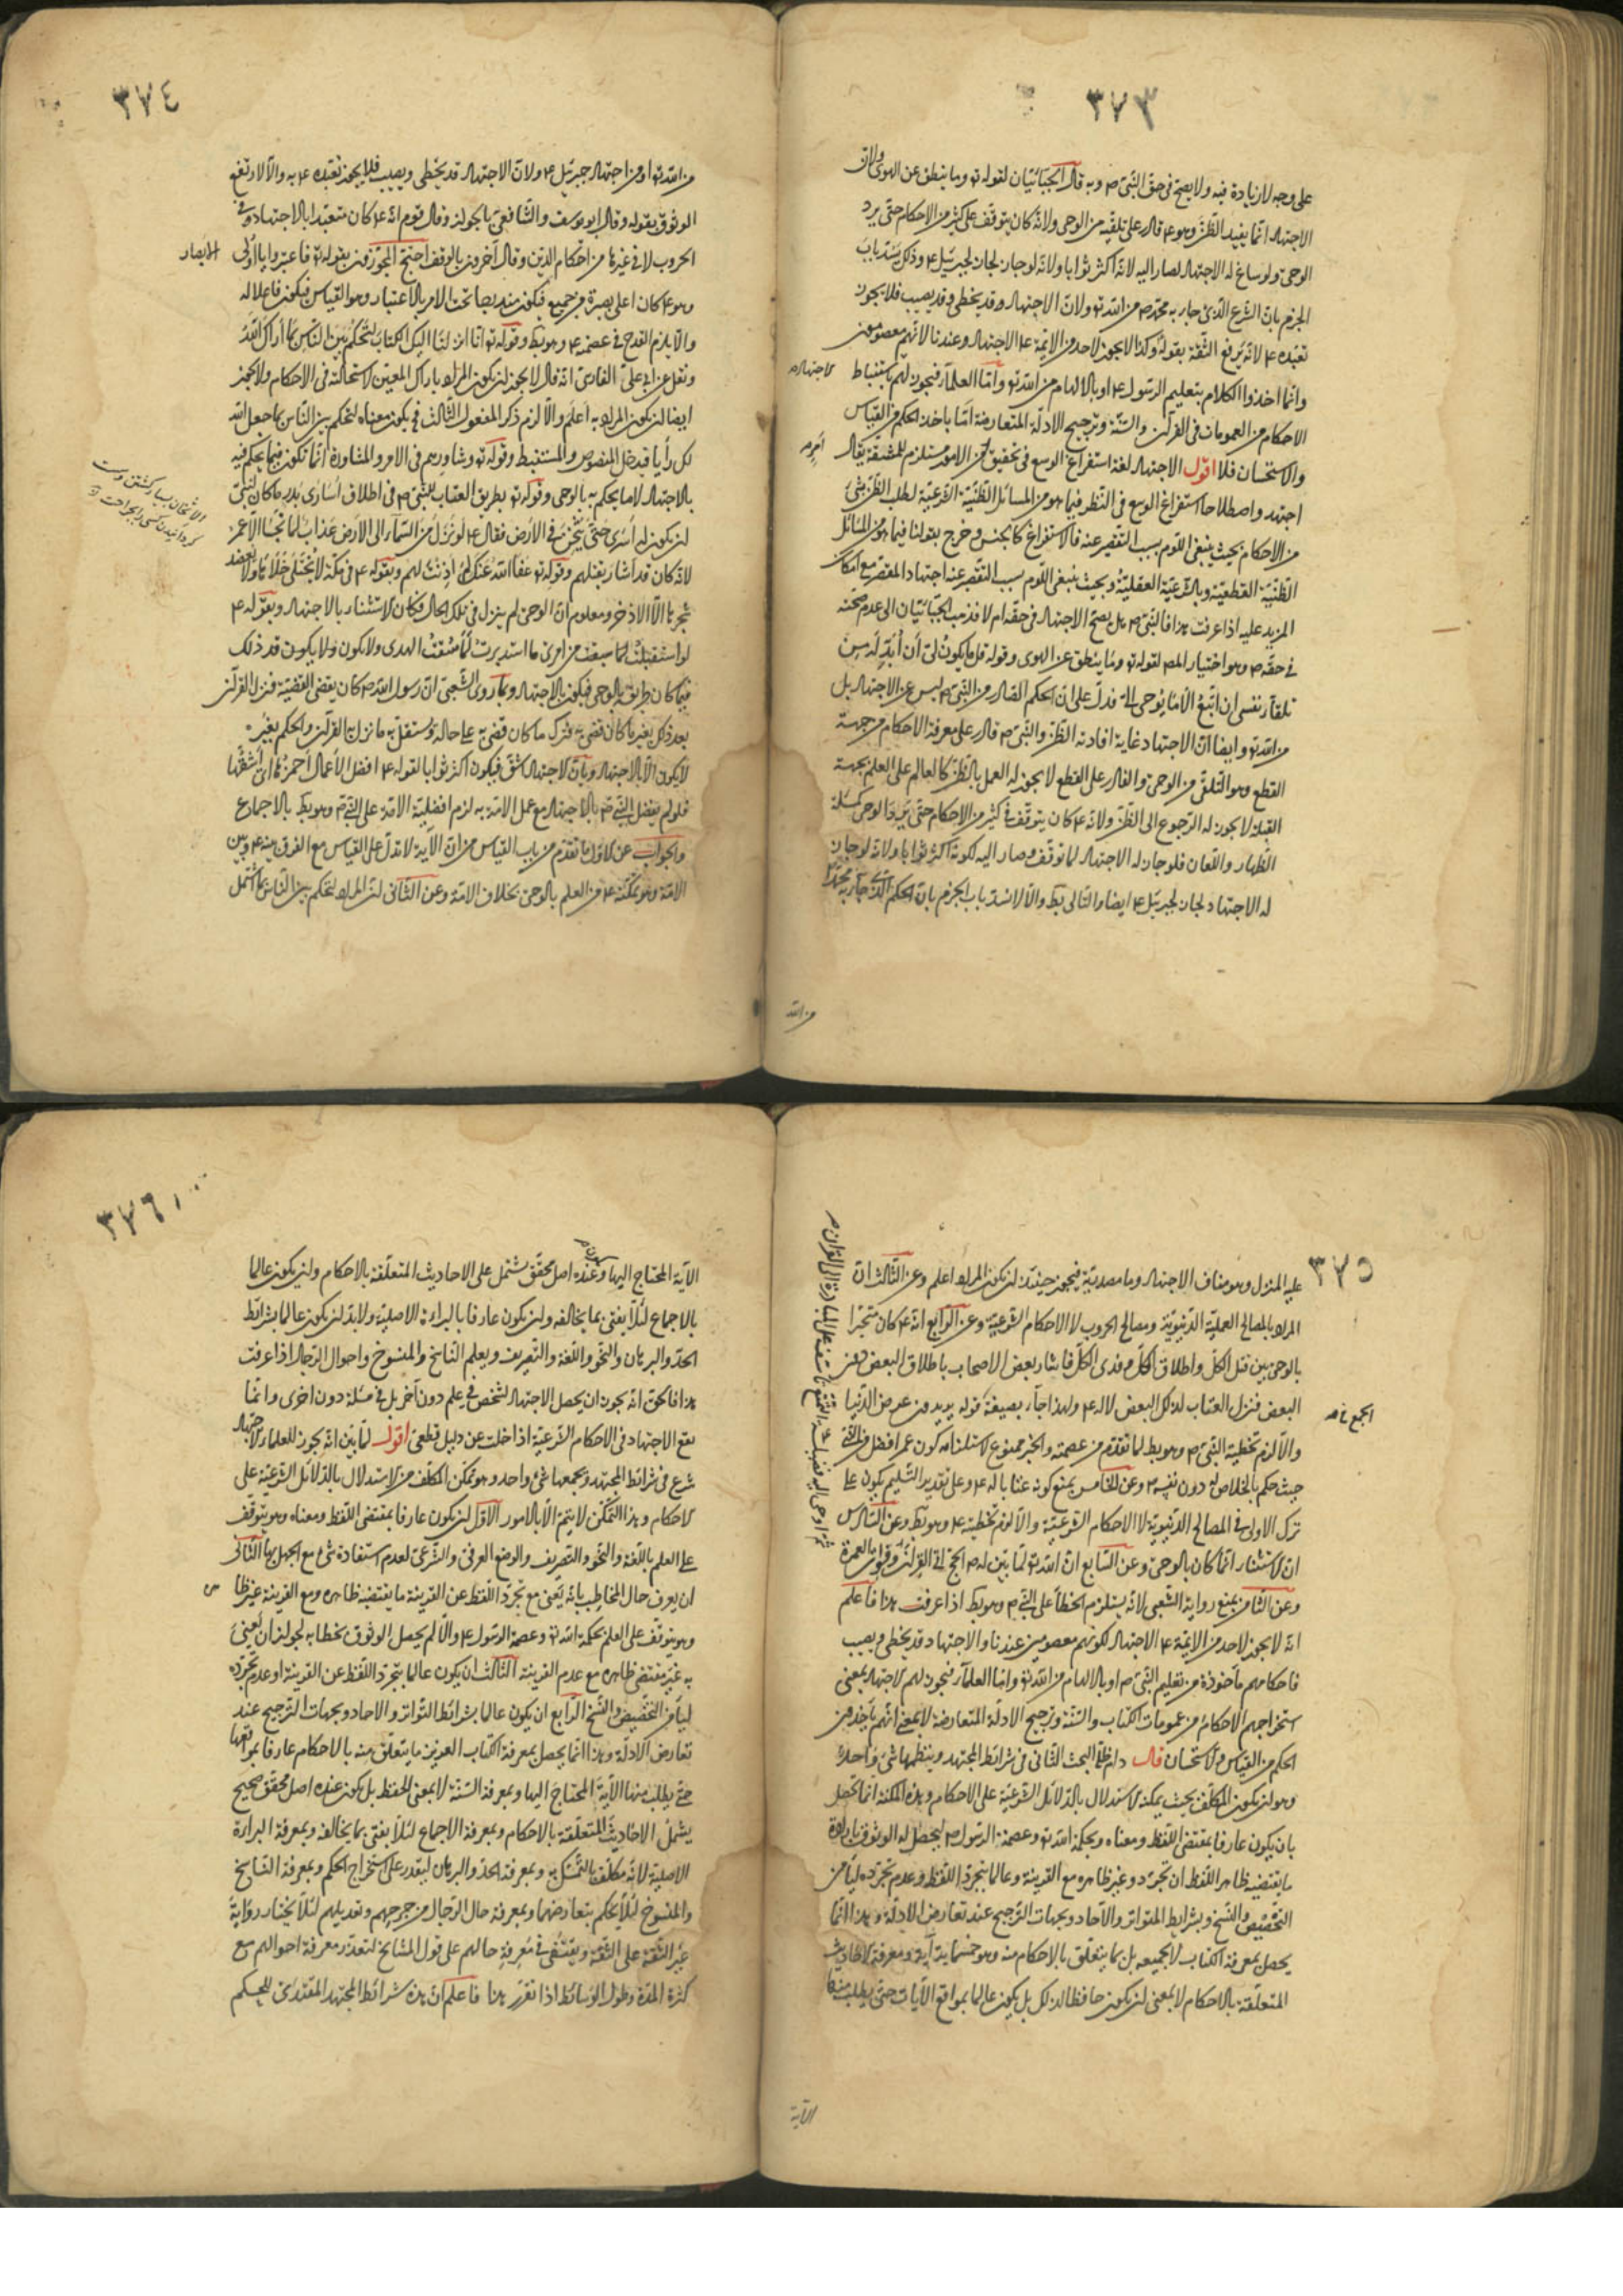 ٣٧٣
على وجه لا زيادة فيه ولا يصح فى حق النبى ص وبه قال الجبائيان لقوله تع وما ينطق عن الهوى ولان
الاجتهاد انما يفيد الظن وهو ع قادر على تلقيه من الوحى ولانه كان يتوقف على كثير من الاحكام حتى يرد
الوحى ولو ساغ له الاجتهاد لصار اليه لانه اكثر ثوابا ولانه لو جاز لجاز لجبرئيل ع وذلك يسد باب
الجزم بان الشرع الذى جاء به محمد ص من الله تع ولان الاجتهاد قد يخطى وقد يصيب فلا يجوز
تعبده ع لانه يرفع الثقة بقوله وكذا لا يجوز لاحد من الائمة ع الاجتهاد وعندنا لانهم معصومون
وانما اخذوا الكلام بتعليم الرسول ع او بالالهام من الله تع واما العلماء فيجوز لهم باستنباط
الاجتهاد ص
الاحكام من العمومات فى القرآن والسنة وبترجيح الادلة المتعارضة اما باخذ الحكم من القياس
والاستحسان فلا اقول الاجتهاد لغة استفراغ الوسع فى تحقيق امر من الامور مستلزم للمشقة يقال
اجتهد واصطلاحا استفراغ الوسع فى النظر فيما هو من المسائل الظنية الشرعية لطلب الظن بشئ
من الاحكام بحيث ينتفى اللوم بسبب التقصير عنه فالاستفراغ كالجنس وخرج بقولنا فيما هو من المسائل
الظنية القطعية وبالشرعية العقلية وبحيث ينتفى اللوم بسبب التقصير عنه اجتهاد المقصر مع امكان
المزيد عليه اذا عرفت هذا فالنبى ص هل يصح الاجتهاد فى حقه ام لا فذهب الجبائيان الى عدم صحته
فى حقه ص وهو اختيار المصـ لقوله تع وما ينطق عن الهوى وقوله قل ما يكون لى ان ابدله من
تلقاء نفسى ان اتبع الا ما يوحى الى فدل على ان الحكم الصادر من النبى ص ليس عن الاجتهاد بل
من الله تع وايضا ان الاجتهاد غاية افادته الظن والنبى ص قادر على معرفة الاحكام من جهة
القطع وهو التلقى من الوحى والقادر على القطع لا يجوز له العمل بالظن كالعالم على العلم بجهة
القبلة لا يجوز له الرجوع الى الظن ولانه ع كان يتوقف فى كثير من الاحكام حتى يرد الوحى كمسئلة
الظهار واللعان فلو جاز له الاجتهاد لما توقف وصار اليه لكونه اكثر ثوابا ولانه لو جاز
له الاجتهاد لجاز لجبرئيل ع ايضا والتالى بط والا لانسد باب الجزم بان الحكم الذى جاء به محمد ص
من الله
٣٧٤
من الله تع او من اجتهاد جبرئيل ع ولان الاجتهاد قد يخطى ويصيب فلا يجوز تعبده ع به والا لارتفع
الوثوق بقوله وقال ابو يوسف والشافعى بالجواز وقال قوم انه ع كان متعبدا بالاجتهاد فى
الحروب لا فى غيرها من احكام الدين وقال آخرون بالوقف احتج المجوزون بقوله تع فاعتبروا يا اولى
الابصار
وهو ع كان اعلى بصيرة من جميع فيكون مندرجا تحت الامر بالاعتبار وهو القياس فيكون فاعلا له
والا يلزم القدح فى عصمته ع وهو بط وقوله تع انا انزلنا اليك الكتاب لتحكم بين الناس بما اراك الله
ونقل عن ابى على الفارسى انه قال لا يجوز ان يكون المراد باراك المعين لاستحالته فى الاحكام ولا يجوز
ايضا ان يكون المراد به اعلم والا لزم ذكر المفعول الثالث فيكون معناه لتحكم بين الناس بما جعل الله
لك رأيا فيدخل المنصوص والمستنبط وقوله تع وشاورهم فى الامر والمشاورة انما تكون فيما يحكم فيه
بالاجتهاد لا ما يحكم به بالوحى وقوله تع بطريق العتاب للنبى ص فى اطلاق اسارى بدر ما كان لنبى
الاثخان بسيار كشتن و سست
گردانيدن كسى را بجراحت
ان يكون له اسرى حتى يثخن فى الارض فقال ع لو نزل من السماء الى الارض عذاب لما نجا الا عمر
لانه كان قد اشار بقتلهم وقوله تع عفا الله عنك لم اذنت لهم وبقوله ع فى مكة لا يختلى خلاها ولا يعضد
شجرها الا الاذخر ومعلوم ان الوحى لم ينزل فى تلك الحال فكان الاستثناء بالاجتهاد وبقوله ع
لو استقبلت لما سبقت من امرى ما استدبرت لما سقت الهدى ولا يكون ذلك
فيما كان طريقه بالوحى فيكون بالاجتهاد وبما روى الشعبى ان رسول الله ص كان يقضى القضية فنزل القرآن
بعد ذلك بغير ما كان قضى به فترك ما كان قضى به على حاله واستقل به ما نزل به القرآن والحكم بغيره
لا يكون الا بالاجتهاد وبان الاجتهاد اشق فيكون اكثر ثوابا لقوله ع افضل الاعمال احمزها اى اشقها
فلو لم يفضل النبى ص بالاجتهاد مع عمل الامة به لزم افضلية الامة على النبى ص وهو بط بالاجماع
والجواب عن الاول ما تقدم من باب القياس من ان الآية لا تدل على القياس مع الفرق بينه ع وبين
الامة وهو تمكنه ع من العلم بالوحى بخلاف الامة وعن الثانى ان المراد لتحكم بين الناس بما اشتمل
٣٧٥
عليه المنزل وهو مناف الاجتهاد وما مصدرية فيجوز حينئذ ان يكون المراد اعلم وعن الثالث ان
المراد بالمصالح العملية الدنيوية ومصالح الحروب لا الاحكام الشرعية وعن الرابع انه ع كان مخيرا
بالوحى بين قتل الكل واطلاق الكل وفدى الكل فاشار بعض الاصحاب باطلاق البعض دون
البعض فنزل العتاب لذلك البعض لا له ع ولهذا جاء بصيغة قوله تريدون عرض الدنيا
والا لزم تخطية النبى ص وهو بط لما تقدم من عصمته والخبر ممنوع لاستلزامه كون عمر افضل من النبى
حيث حكم بالخلاص له دون نفسه ع وعن الخامس بمنع كونه عتابا له ع وعلى تقدير التسليم يكون على
ترك الاولى فى المصالح الدنيوية لا الاحكام الشرعية والا لزم تخطيته ع وهو بط وعن السادس
ان الاستثناء انما كان بالوحى وعن السابع ان الله تع لما بين له ص الحج فى القران وفوات العمرة
وعن الثامن بمنع رواية الشعبى لانه يستلزم الخطأ على النبى ص وهو بط اذا عرفت هذا فاعلم
انه لا يجوز لاحد من الائمة ع الاجتهاد لكونهم معصومين عندنا والاجتهاد قد يخطى ويصيب
فاحكامهم مأخوذة من تعليم النبى ص او بالالهام من الله تع واما العلماء فيجوز لهم الاجتهاد بمعنى
استخراجهم الاحكام من عمومات الكتاب والسنة وترجيح الادلة المتعارضة لا بمعنى انهم يأخذون
الحكم من القياس والاستحسان قال دام ظله البحث الثانى فى شرائط المجتهد وينظمها شئ واحد
وهو ان يكون المكلف بحيث يمكنه الاستدلال بالدلائل الشرعية على الاحكام وهذه المكنة انما تحصل
بان يكون عارفا بمقتضى اللفظ ومعناه وبحكمة الله تع وعصمة الرسول ص ليحصل له الوثوق بارادة
ما يقتضيه ظاهر اللفظ ان تجرد وغير ظاهره مع القرينة وعالما بتجرد اللفظ وعدم تجرده ليأمن
التخصيص والنسخ وبشرايط المتواتر والآحاد وبجهات الترجيح عند تعارض الادلة وهذا انما
يحصل بمعرفة الكتاب لا بجميعه بل بما يتعلق بالاحكام منه وهو خمسمائة آية ومعرفة الاحاديث
المتعلقة بالاحكام لا بمعنى ان يكون حافظا لذلك بل يكون عالما بمواقع الآيات حتى يطلب منها
الآية
٣٧٦
الآية المحتاج اليها وعنده اصل محقق يشتمل على الاحاديث المتعلقة بالاحكام وان يكون عالما
بالاجماع لئلا يفتى بما يخالفه وان يكون عارفا بالبراءة الاصلية ولا بد ان يكون عالما بشرائط
الحد والبرهان والنحو واللغة والتصريف ويعلم الناسخ والمنسوخ واحوال الرجال اذا عرفت
هذا فالحق انه يجوز ان يحصل الاجتهاد لشخص فى علم دون آخر بل فى مسئلة دون اخرى وانما
يقع الاجتهاد فى الاحكام الشرعية اذا خلت عن دليل قطعى اقول لما بين انه يجوز للعلماء الاجتهاد
شرع فى شرائط المجتهد ويجمعها شئ واحد وهو تمكن المكلف من الاستدلال بالدلائل الشرعية على
الاحكام وهذا التمكن لا يتم الا بالامور الاول ان يكون عارفا بمقتضى اللفظ ومعناه وهو يتوقف
على العلم باللغة والنحو والتصريف والوضع العرفى والشرعى لعدم استفادة شئ مع الجهل بها الثانى
ان يعرف حال المخاطب بانه يعنى مع تجرد اللفظ عن القرينة ما يقتضيه ظاهره ومع القرينة غير ظا
وهو يتوقف على العلم بحكمة الله تع وعصمة الرسول ع والا لم يحصل الوثوق بخطابه لجواز ان يعنى
به غير مقتضى ظاهره مع عدم القرينة الثالث ان يكون عالما بتجرد اللفظ عن القرينة او عدم تجرده
ليأمن التخصيص والنسخ الرابع ان يكون عالما بشرائط التواتر والآحاد وبجهات الترجيح عند
تعارض الادلة وهذا انما يحصل بمعرفة الكتاب العزيز ما يتعلق منه بالاحكام عارفا بمواقعها
حتى يطلب منها الآية المحتاج اليها وبمعرفة السنة لا بمعنى الحفظ بل يكون عنده اصل محقق صحيح
يشمل الاحاديث المتعلقة بالاحكام وبمعرفة الاجماع لئلا يفتى بما يخالفه وبمعرفة البراءة
الاصلية لانه مكلف بالتمسك بها وبمعرفة الحد والبرهان ليقدر على استخراج الحكم وبمعرفة الناسخ
والمنسوخ لئلا يحكم بتعارضهما وبمعرفة حال الرجال من جرحهم وتعديلهم لئلا يختار رواية
غير الثقة على الثقة ويكتفى فى معرفة حالهم على قول المشايخ لتعذر معرفة احوالهم مع
كثرة المدة وطول الوسائط اذا تقرر هذا فاعلم ان هذه شرائط المجتهد المقتدى للحكم